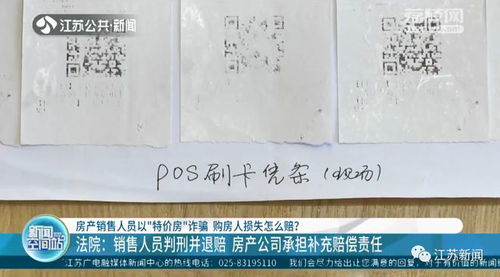 江苏公共·新闻
荔枝网
POS刷卡凭条(现场)
新闻空间站
房产销售人员以"特价房"诈骗 购房人损失怎么赔?
法院：销售人员判刑并退赔 房产公司承担补充赔偿责任
江苏广电融媒体新闻中心的热线电话：025-83195110 我们会尽力给出让您满意的回复，对于有价值的新闻
江苏新闻